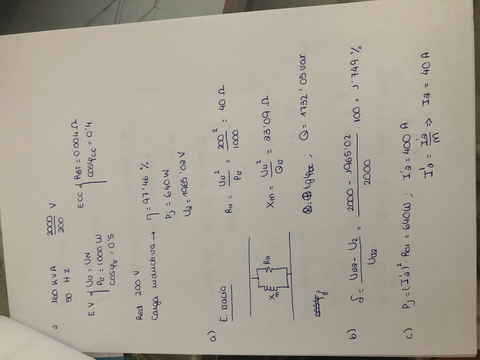 2 160 KVA 2000/200 V
50 Hz
E.V { U0 = UN
P0 = 1000 W
cosφ0 = 0'5
ECC { RBT = 0'004 Ω
cosφcc = 0'4
Red 200 V
Carga inductiva → η = 97'46 %
Pj = 640 W
U2 = 1965'02 V
a) E. vacio
Xm RH
RH = U0²/P0 = 200²/1000 = 40 Ω
Xm = U0²/Q0 = 23'09 Ω
Q = 1732'05 var
b) δ = U02 - U2/U02 = 2000 - 1965'02/2000 · 100 = 1'749 %
c) Pj = (I'2)² · R01 = 640 W ; I'2 = 400 A
I'2 = I2/m ⇒ I2 = 40 A